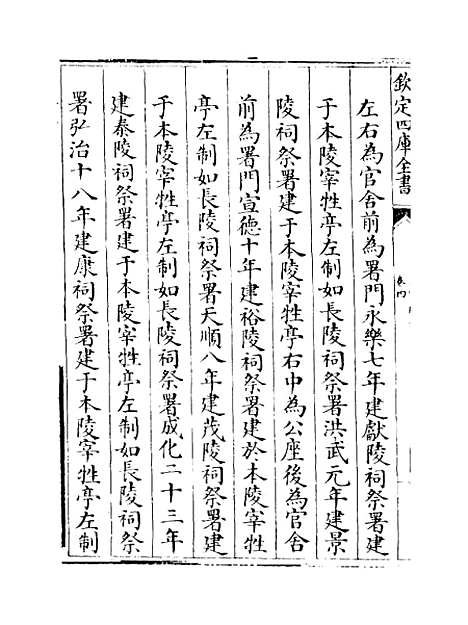 欽定四庫全書
卷四
左右為官舍前為署門永樂七年建獻陵祠祭署建
于本陵宰牲亭左制如長陵祠祭署洪武元年建景
陵祠祭署建于本陵宰牲亭右中為公座後為官舍
前為署門宣德十年建裕陵祠祭署建於本陵宰牲
亭左制如長陵祠祭署天順八年建茂陵祠祭署建
于本陵宰牲亭左制如長陵祠祭署成化二十三年
建泰陵祠祭署建于本陵宰牲亭左制如長陵祠祭
署弘治十八年建康祠祭署建于本陵宰牲亭左制